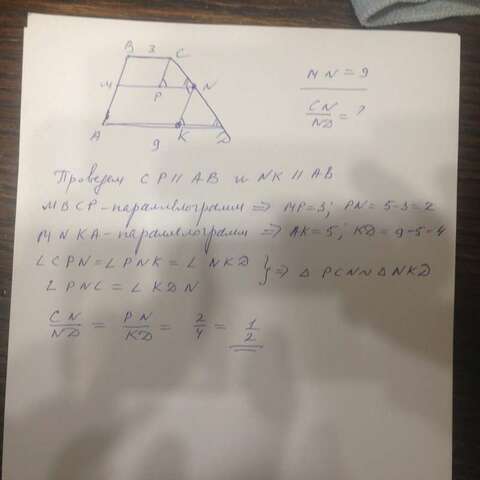 B 3 C
MN = 9
M P N
CN/ND = ?
A 9 K D
Проведем CP || AB и NK || AB
MBCP - параллелограмм => MP=3; PN=5-3=2
MNKA - параллелограмм => AK=5; KD=9-5=4
∠CPN=∠PNK=∠NKD
∠PNC=∠KDN } => △PCN∾△NKD
CN/ND = PN/KD = 2/4 = 1/2